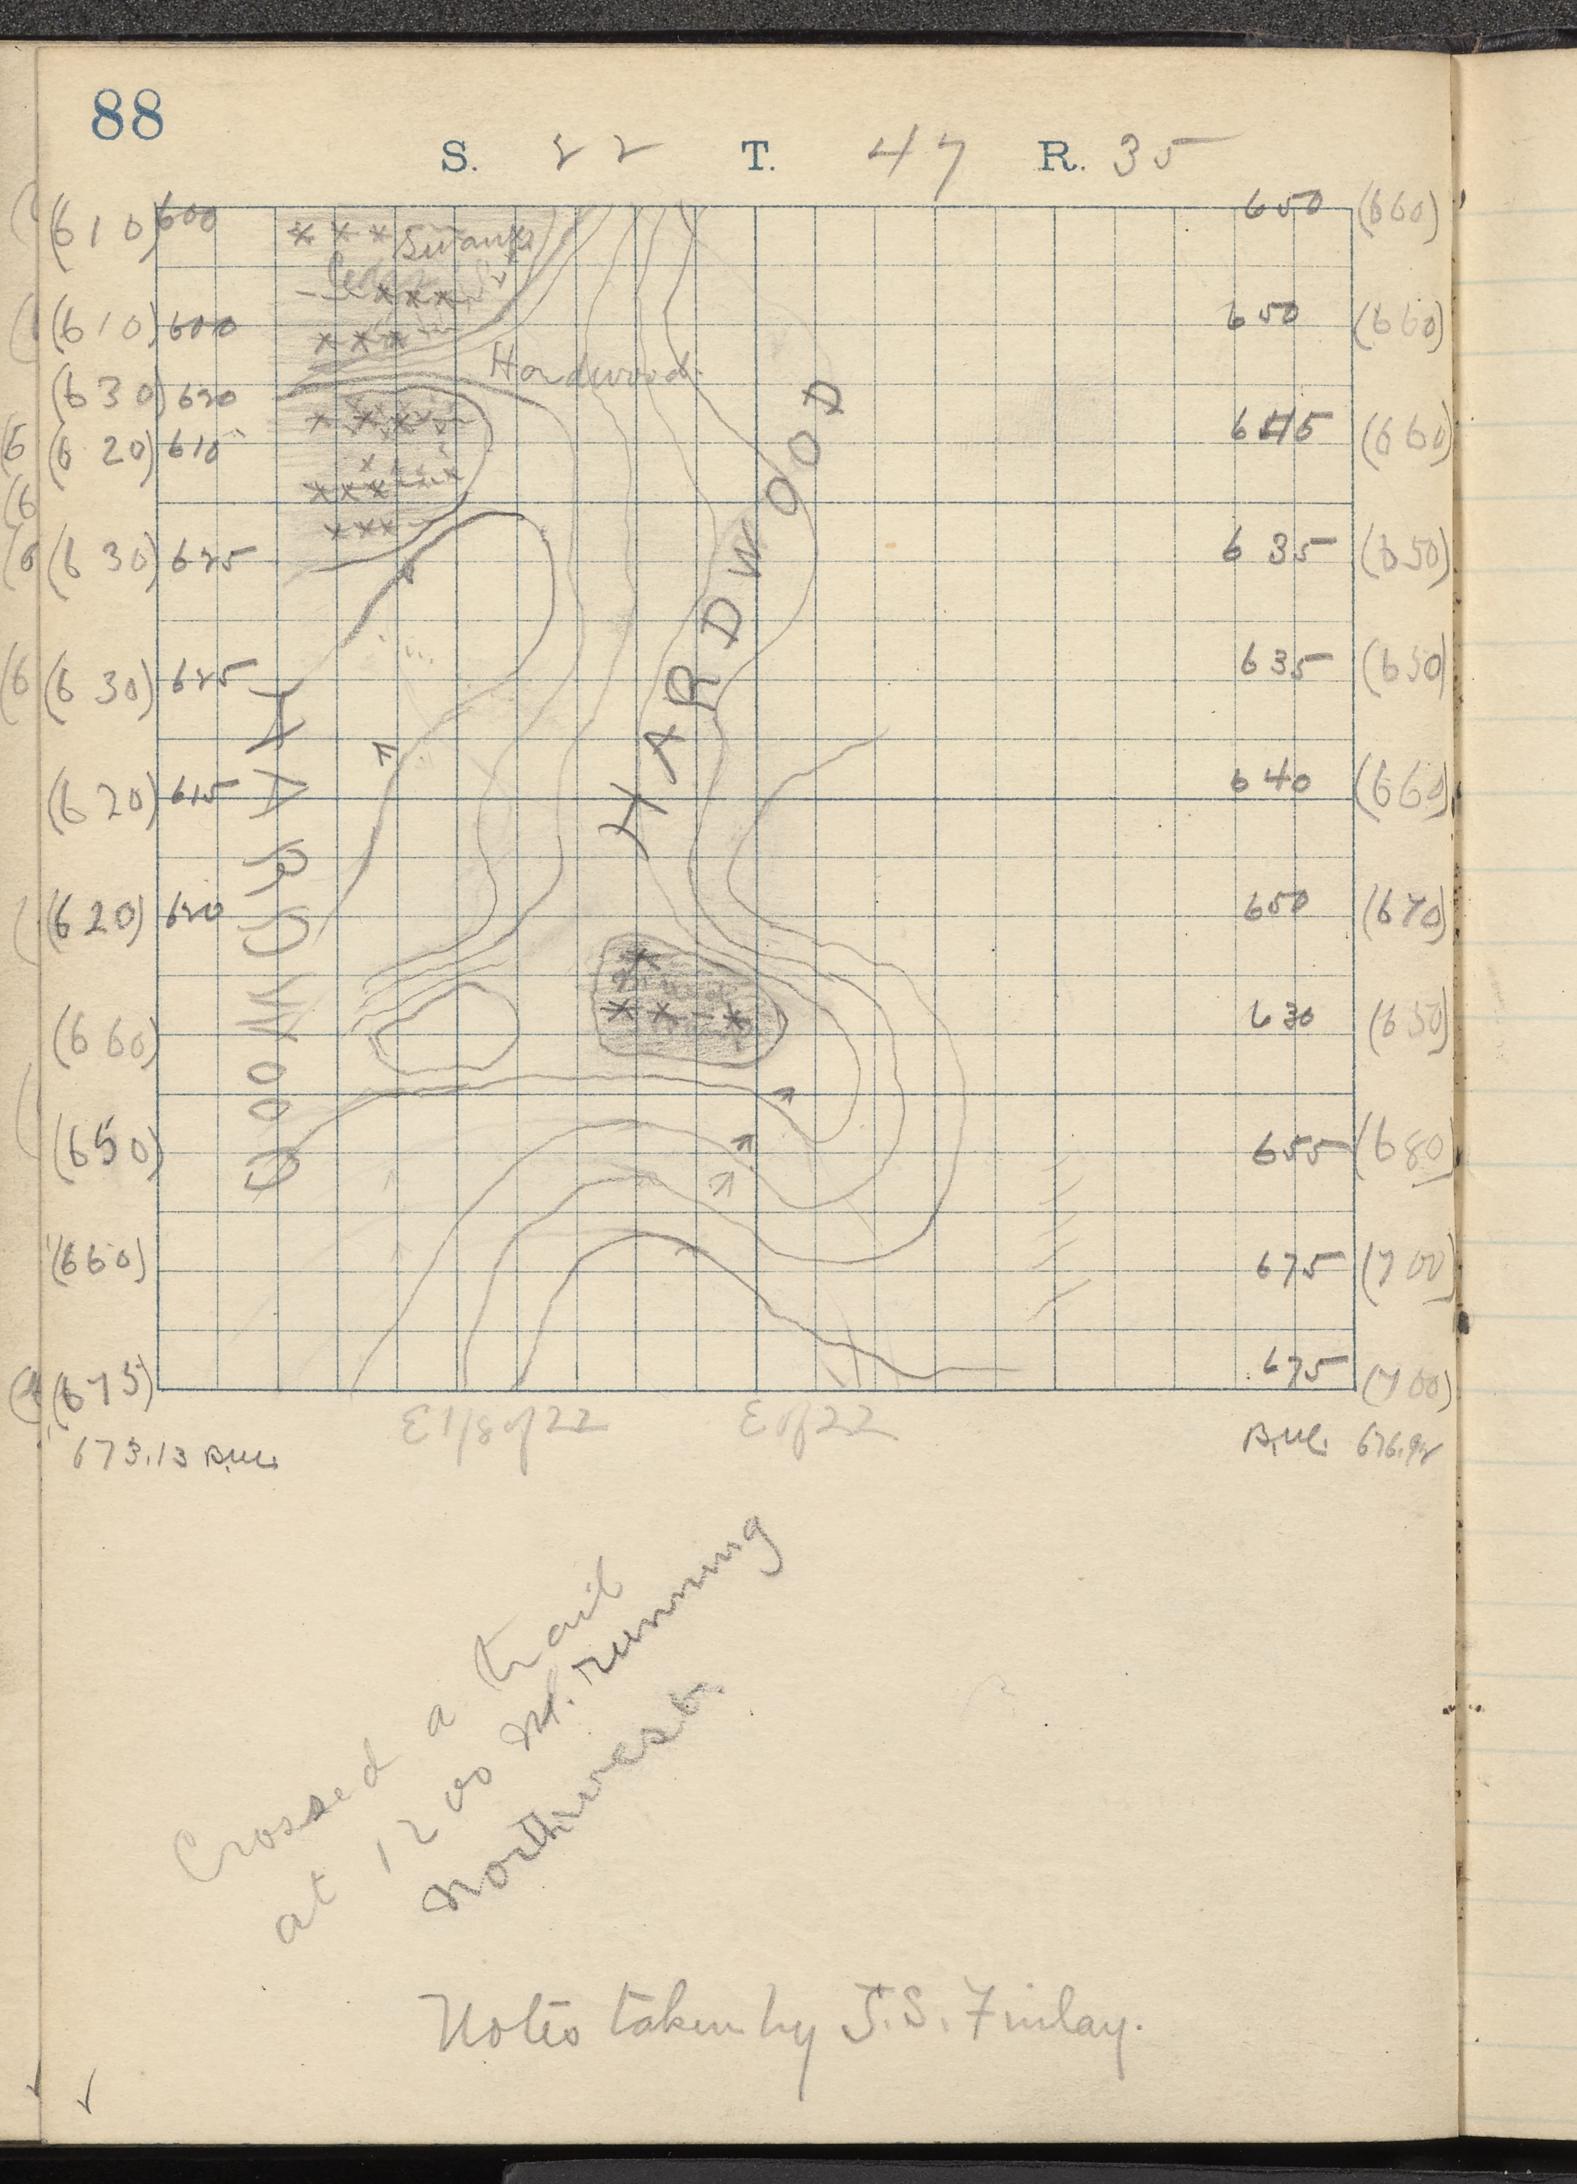 88
S. 22 T. 47 R. 35
(610) 600 650 (660)
Swamp
(610) 600 650 (660)
Hardwood
(630) 620
(620) 610 645 (660)
(630) 625 635 (650)
(630) 625 635 (650)
(620) 615 640 (660)
(620) 620 650 (670)
(660) 630 (650)
(650) 655 (680)
(660) 675 (700)
(675) 675 (700)
HARDWOOD
HARDWOOD
E 1/8 of 22 E of 22
673.13 B.M. B.M. 676.92
Crossed a trail
at 1200 M. running
northwest.
Notes taken by J.S. Finlay.